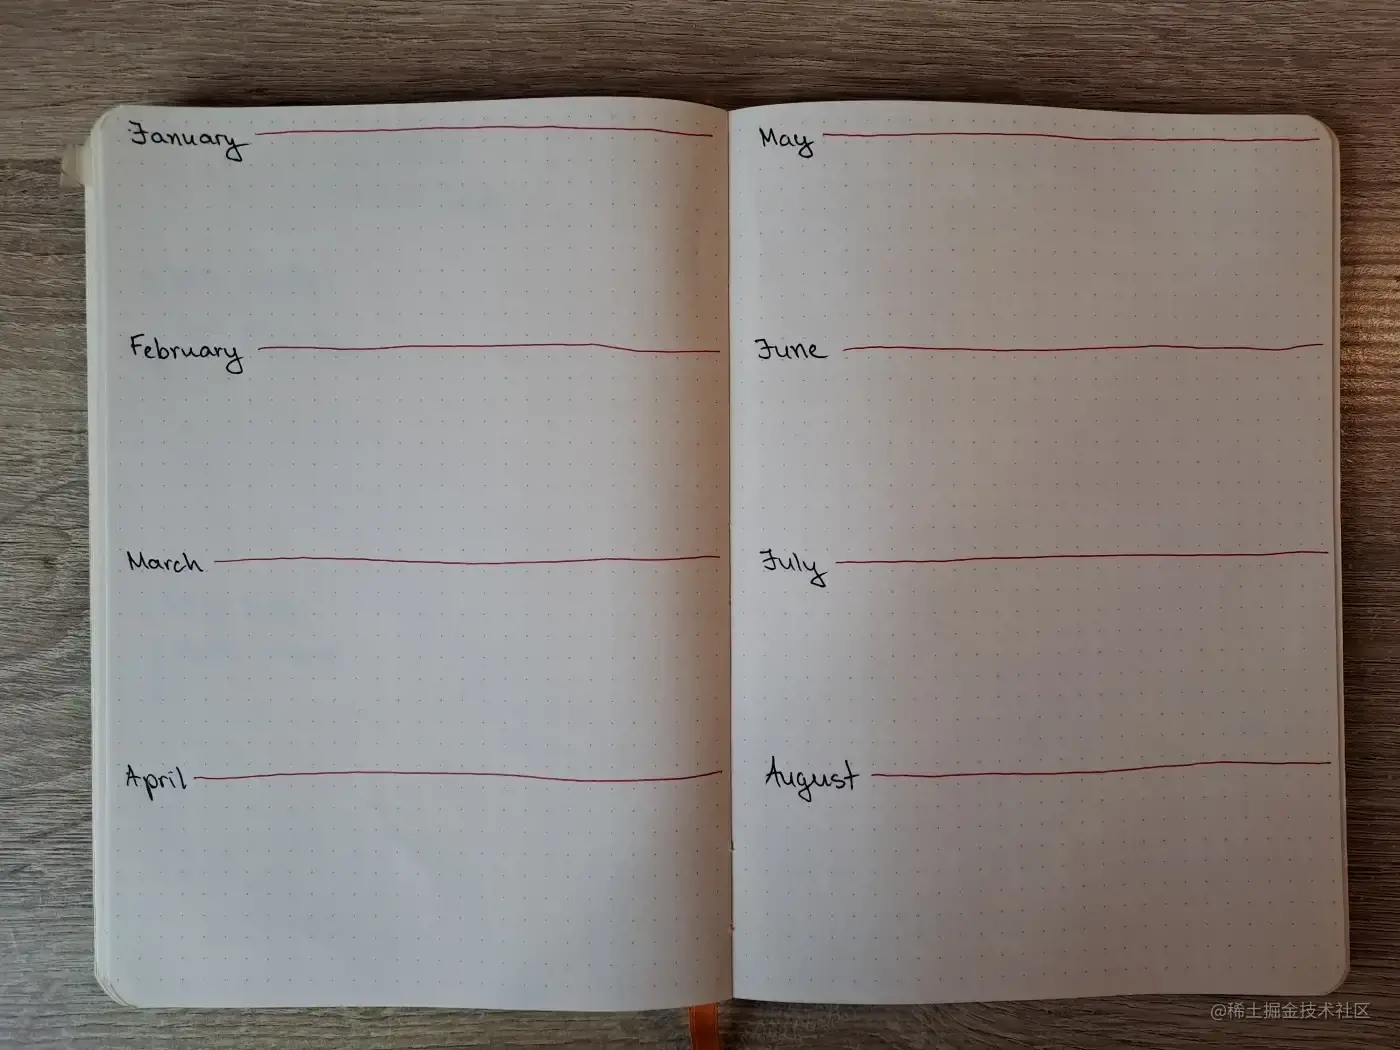 January
February
March
April
May
June
July
August
@稀土掘金技术社区